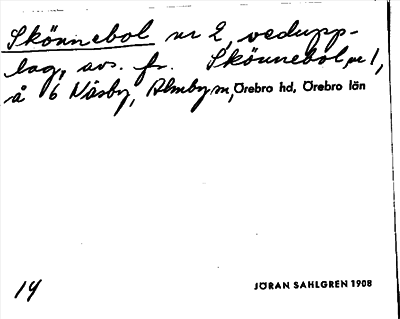 Skönnebol nr 2, vedupp-
lag, avs. fr. Skönnebol nr 1,
å 6 Näsby, Almby sn, Örebro hd, Örebro län
14
JÖRAN SAHLGREN 1908